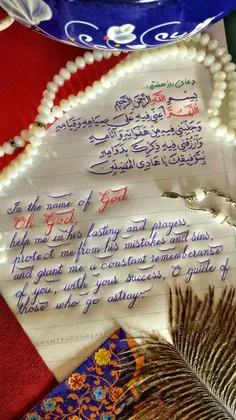 دعای روز هفتم
بسم الله الرحمن الرحیم
اللهم اعنی فیه علی صیامه و قیامه
و جنبنی فیه من هفواته و آثامه
و ارزقنی فیه ذکرک بدوامه
بتوفیقک یا هادی المضلین
In the name of God
Oh God,
help me in his fasting and prayers,
protect me from his mistakes and sins,
and grant me a constant rememberanse
of you, with your success, O guide of
those who go astray.